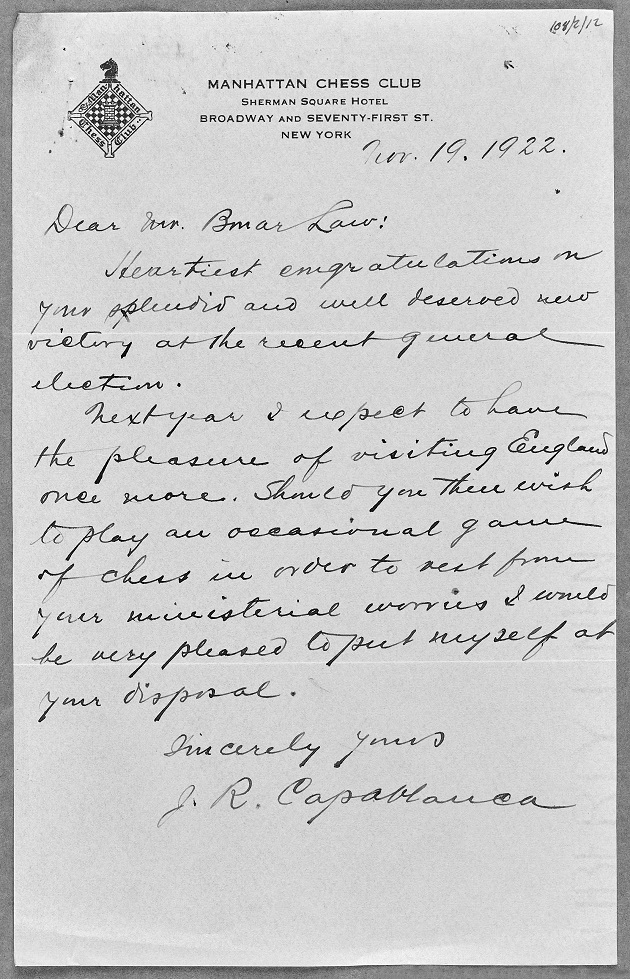 108/2/12
Manhattan Chess Club
MANHATTAN CHESS CLUB
SHERMAN SQUARE HOTEL
BROADWAY AND SEVENTY-FIRST ST.
NEW YORK
Nov. 19. 1922.
Dear Mr. Bonar Law:
Heartiest congratulations on
your splendid and well deserved new
victory at the recent general
election.
Next year I expect to have
the pleasure of visiting England
once more. Should you then wish
to play an occasional game
of chess in order to rest from
your ministerial worries I would
be very pleased to put myself at
your disposal.
Sincerely yours
J. R. Capablanca